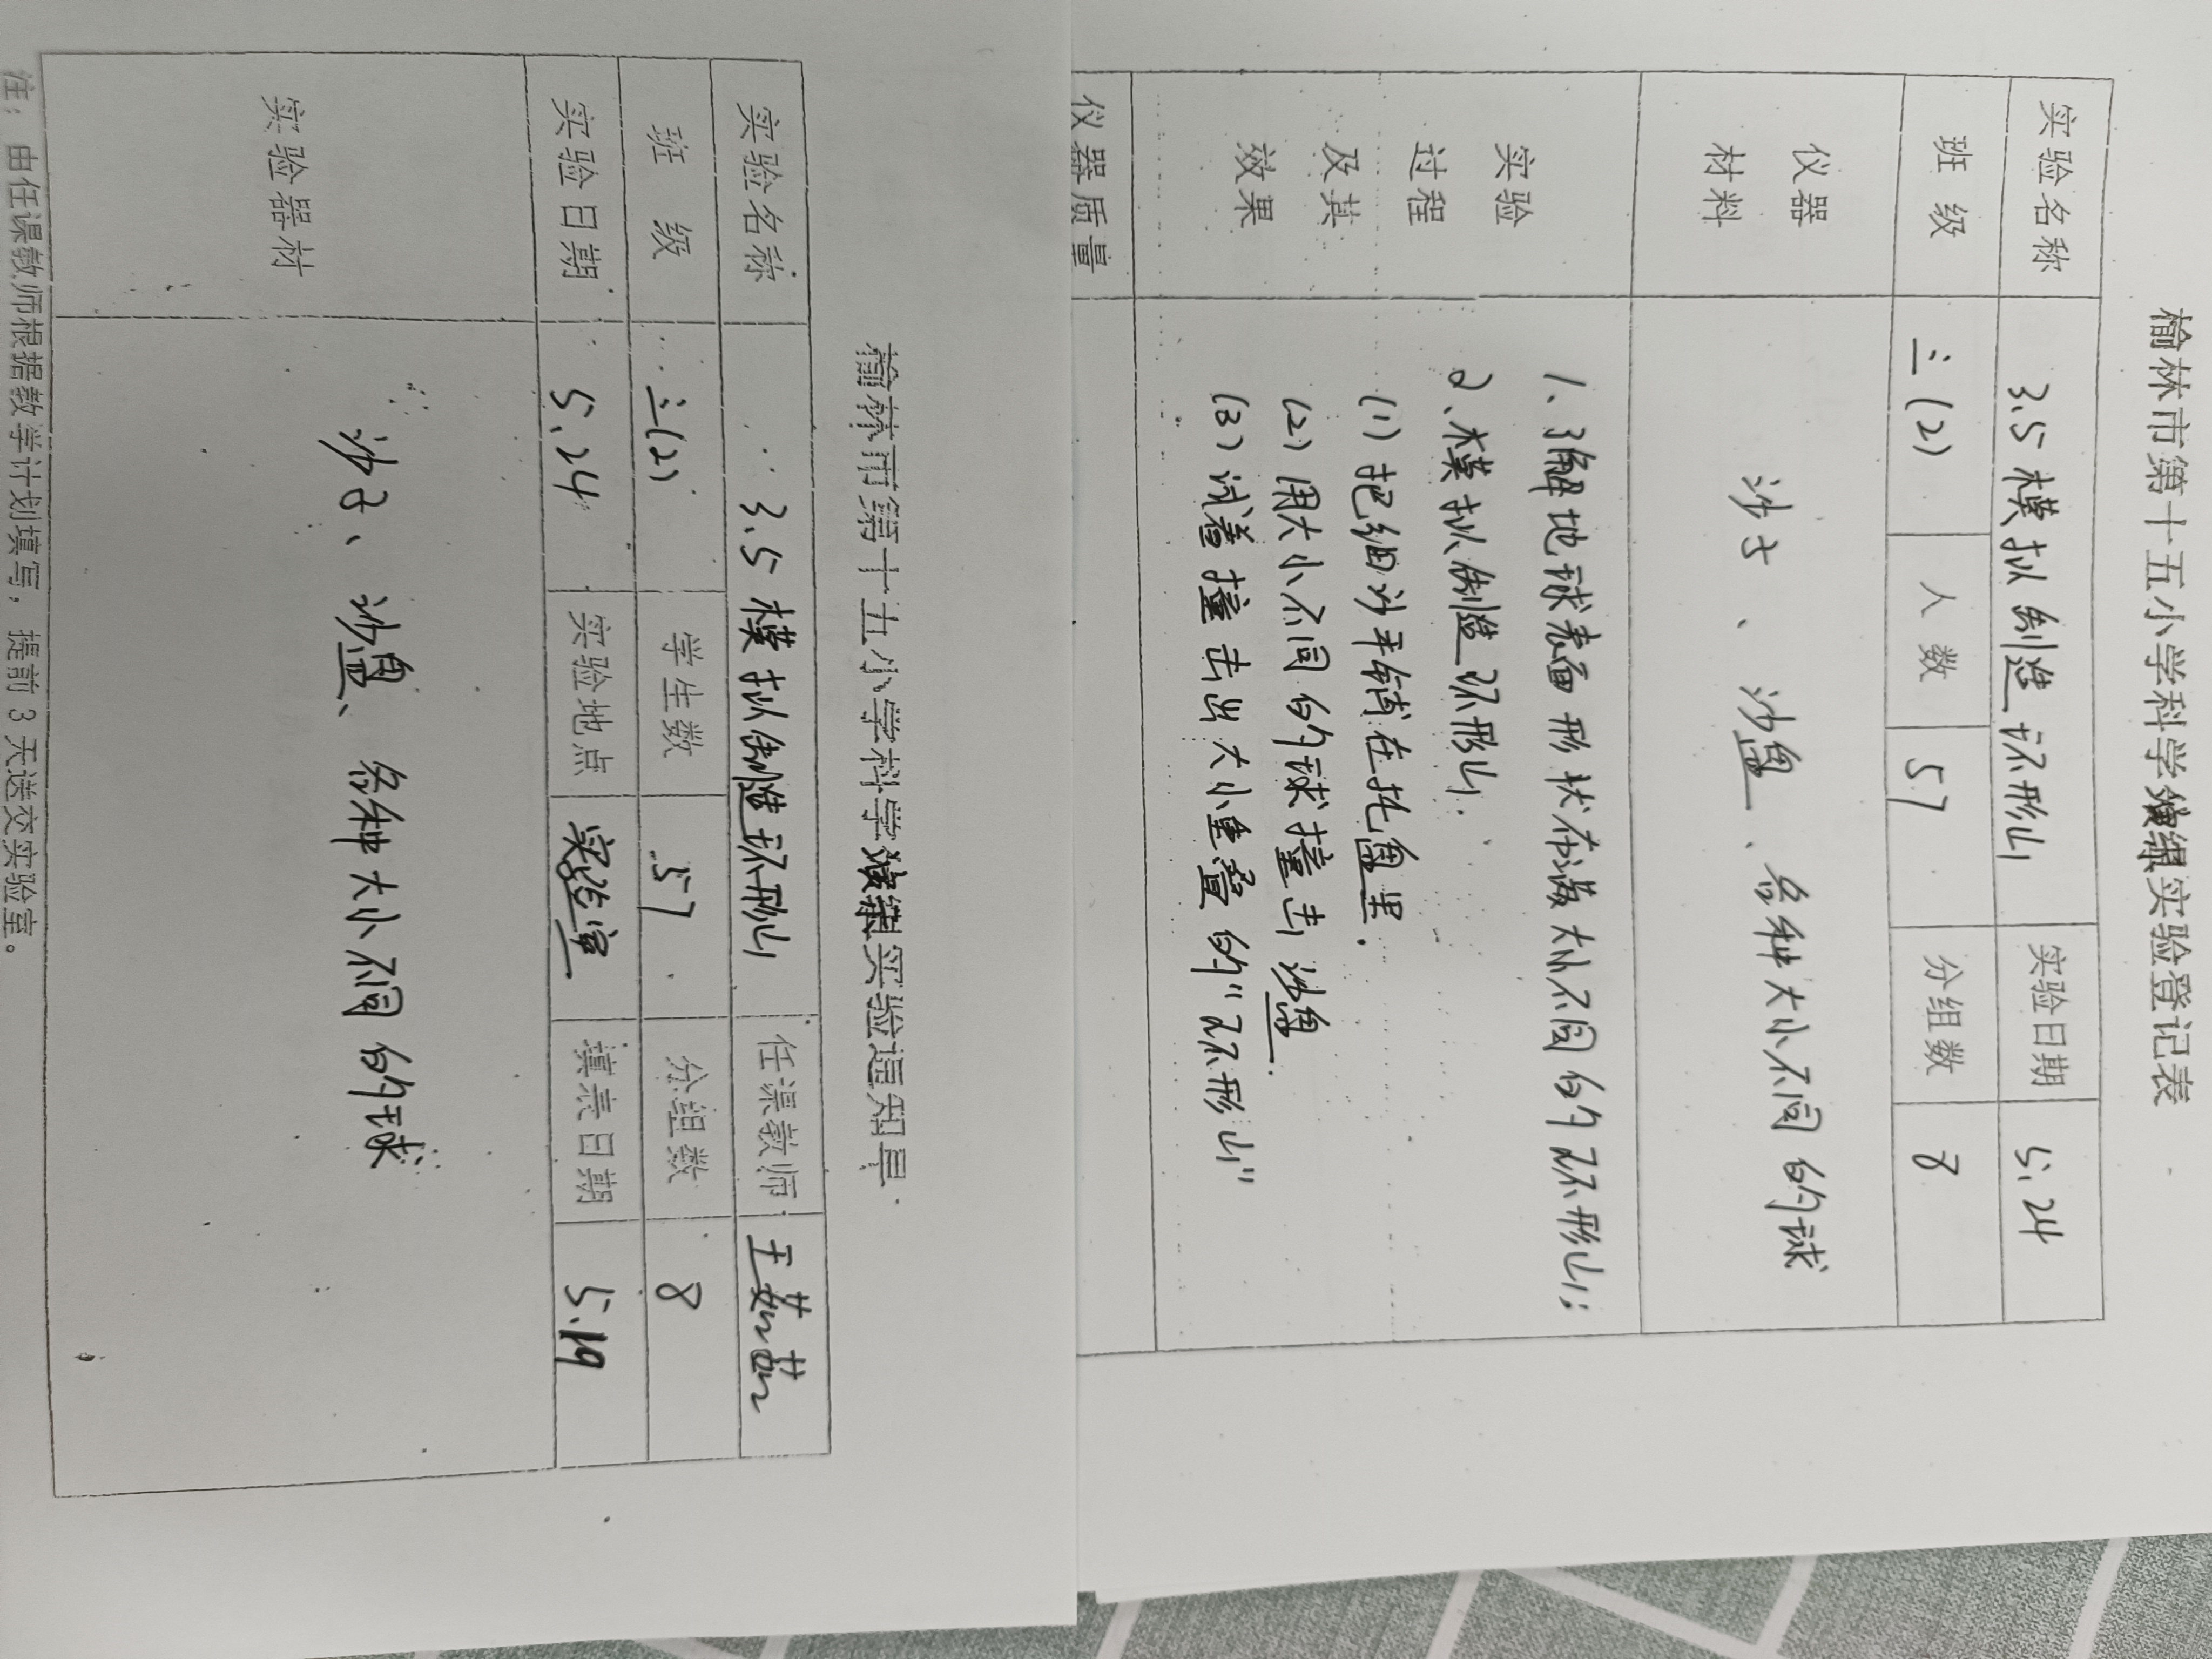 榆林市第十五小学科学实验登记表
实验名称 3.5 模拟制造环形山 实验日期 5.24
班 级 三(2) 人 数 57 分组数 8
仪器
材料
沙子、沙盘、各种大小不同的球
实验
过程
及其
效果
1、了解地球表面形状布满大小不同的环形山;
2、模拟制造环形山.
(1) 把细沙平铺在托盘里.
(2) 用大小不同的球撞击沙盘.
(3) 试着撞击出大小重叠的"环形山"
仪器质量
榆林市第十五小学科学实验通知单
实验名称 3.5 模拟制造环形山 任课教师 王茹茹
班 级 三(2) 学生数 57 分组数 8
实验日期 5.24 实验地点 实验室 填表日期 5.19
实验器材 沙子、沙盘、各种大小不同的球
注：由任课教师根据教学计划填写，提前 3 天送交实验室。